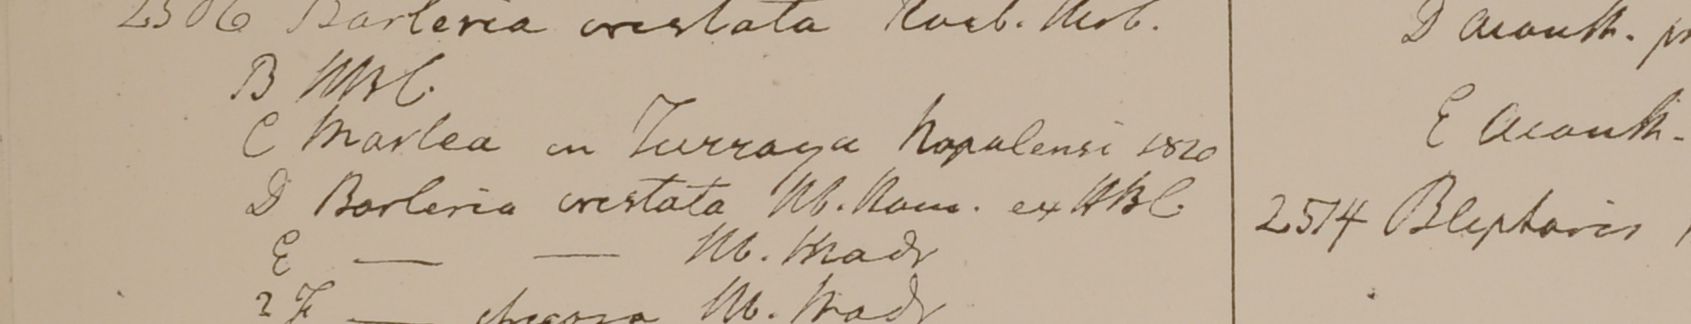 2506 Barleria cristata Roxb. Herb.
B HBC.
C Marlea an Turraya Napalensi 1820
D Barleria cristata Hb. Ham. ex HBC.
E — — Hb. Madr
2 F — Hb. Madr
D Acanth.
E Acanth.
2514 Blepharis